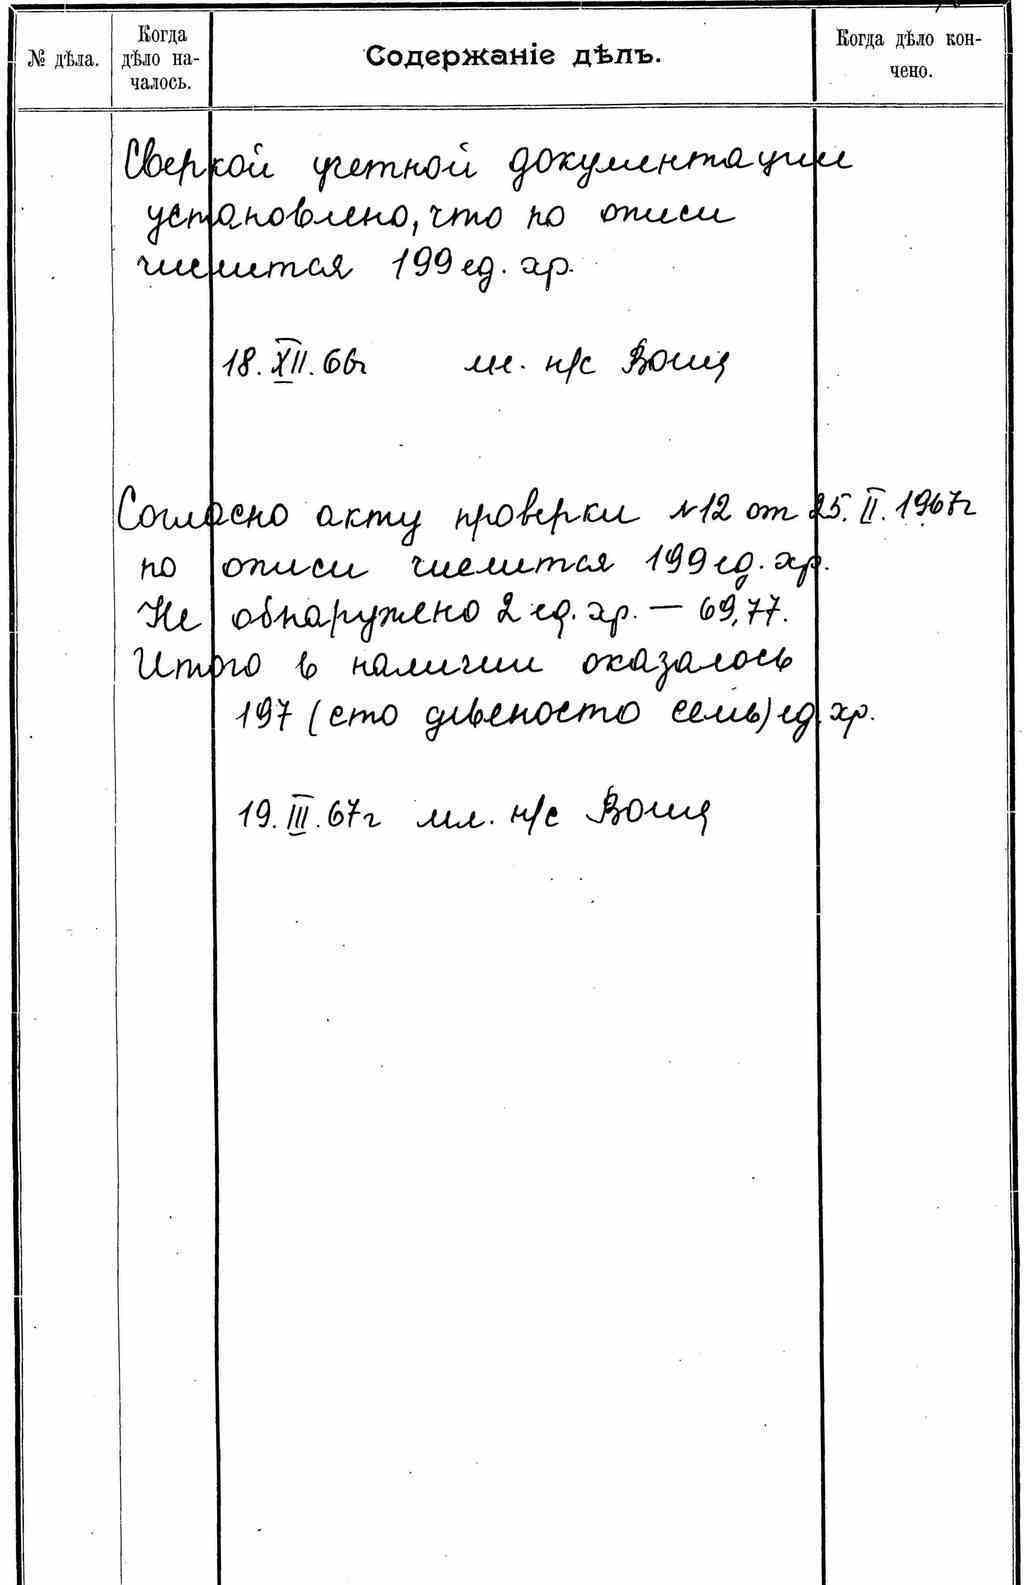 № дѣла.
Когда
дѣло на-
чалось.
Содержаніе дѣлъ.
Когда дѣло кон-
чено.
Сверкой учетной документации
установлено, что по описи
числится 199 ед. хр.
18.XII.66г мл. н/с
Согласно акту проверки №12 от 25.II.1967г
по описи числится 199 ед. хр.
Не обнаружено 2 ед. хр. — 69,77.
Итого в наличии оказалось
197 (сто девяносто семь) ед. хр.
19.III.67г мл. н/с